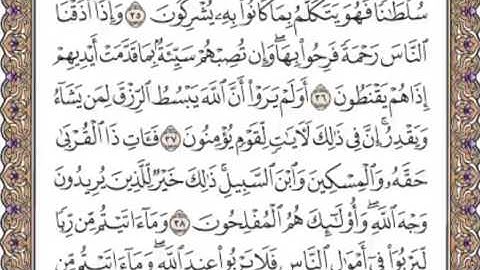 سُلْطَٰنًا فَهُوَ يَتَكَلَّمُ بِمَا كَانُوا۟ بِهِۦ يُشْرِكُونَ ٣٥ وَإِذَآ أَذَقْنَا
ٱلنَّاسَ رَحْمَةً فَرِحُوا۟ بِهَا ۖ وَإِن تُصِبْهُمْ سَيِّئَةٌۢ بِمَا قَدَّمَتْ أَيْدِيهِمْ
إِذَا هُمْ يَقْنَطُونَ ٣٦ أَوَلَمْ يَرَوْا۟ أَنَّ ٱللَّهَ يَبْسُطُ ٱلرِّزْقَ لِمَن يَشَآءُ
وَيَقْدِرُ ۚ إِنَّ فِى ذَٰلِكَ لَءَايَٰتٍ لِّقَوْمٍ يُؤْمِنُونَ ٣٧ فَـَٔاتِ ذَا ٱلْقُرْبَىٰ
حَقَّهُۥ وَٱلْمِسْكِينَ وَٱبْنَ ٱلسَّبِيلِ ۚ ذَٰلِكَ خَيْرٌ لِّلَّذِينَ يُرِيدُونَ
وَجْهَ ٱللَّهِ ۖ وَأُو۟لَٰٓئِكَ هُمُ ٱلْمُفْلِحُونَ ٣٨ وَمَآ ءَاتَيْتُم مِّن رِّبًا
لِّيَرْبُوَا۟ فِىٓ أَمْوَٰلِ ٱلنَّاسِ فَلَا يَرْبُوا۟ عِندَ ٱللَّهِ ۖ وَمَآ ءَاتَيْتُم مِّن